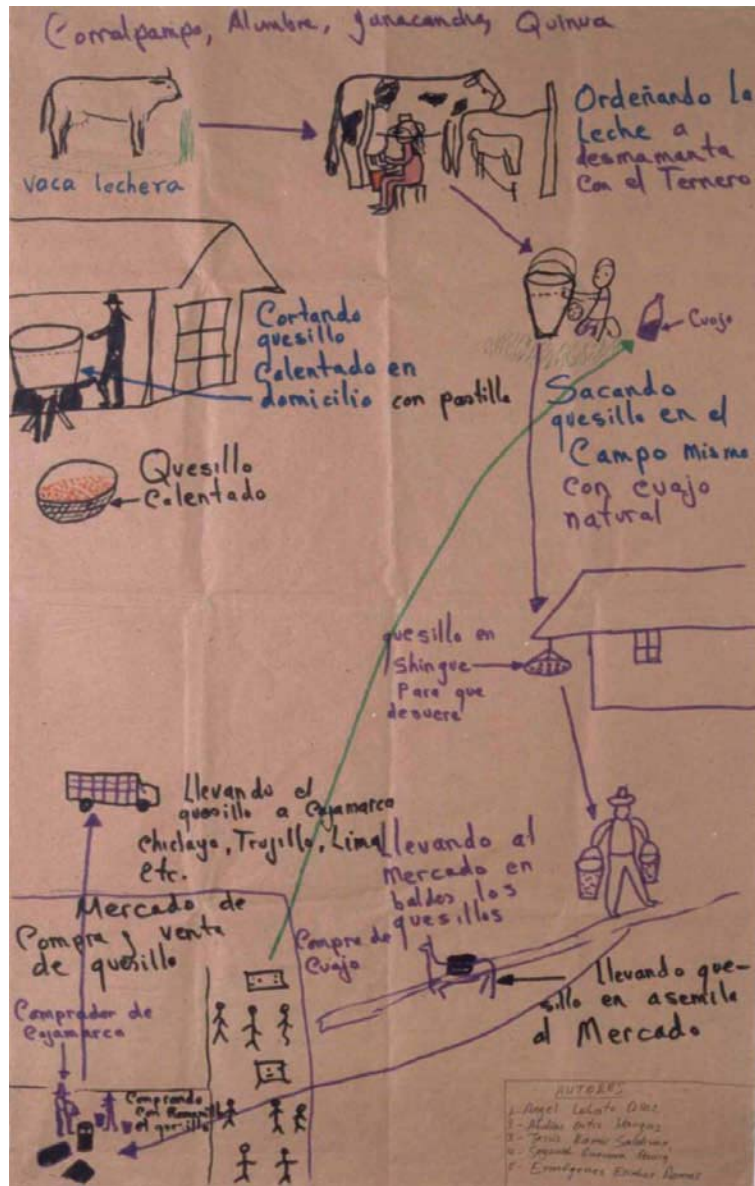 Corralpampo, Alumbre, Yanacancha, Quinua
vaca lechera
Ordeñando la
leche a
desmamanta
Con el Ternero
Cuajo
Cortando
quesillo
Calentado en
domicilio con pastilla
Sacando
quesillo en el
Campo Mismo
con cuajo
natural
Quesillo
Calentado
quesillo en
shingue
Para que
desuere
Llevando el
quesillo a Cajamarca
Chiclayo, Trujillo, Lima
etc.
Llevando al
Mercado en
baldes los
quesillos
Mercado de
Compra y venta
de quesillo
Compra de
Cuajo
llevando que-
sillo en asemila
al Mercado
Comprador de
Cajamarca
Comprando
con Romanilla
el quesillo
AUTORES
1- Angel
2-
3- Jesús
4- Segundo
5-